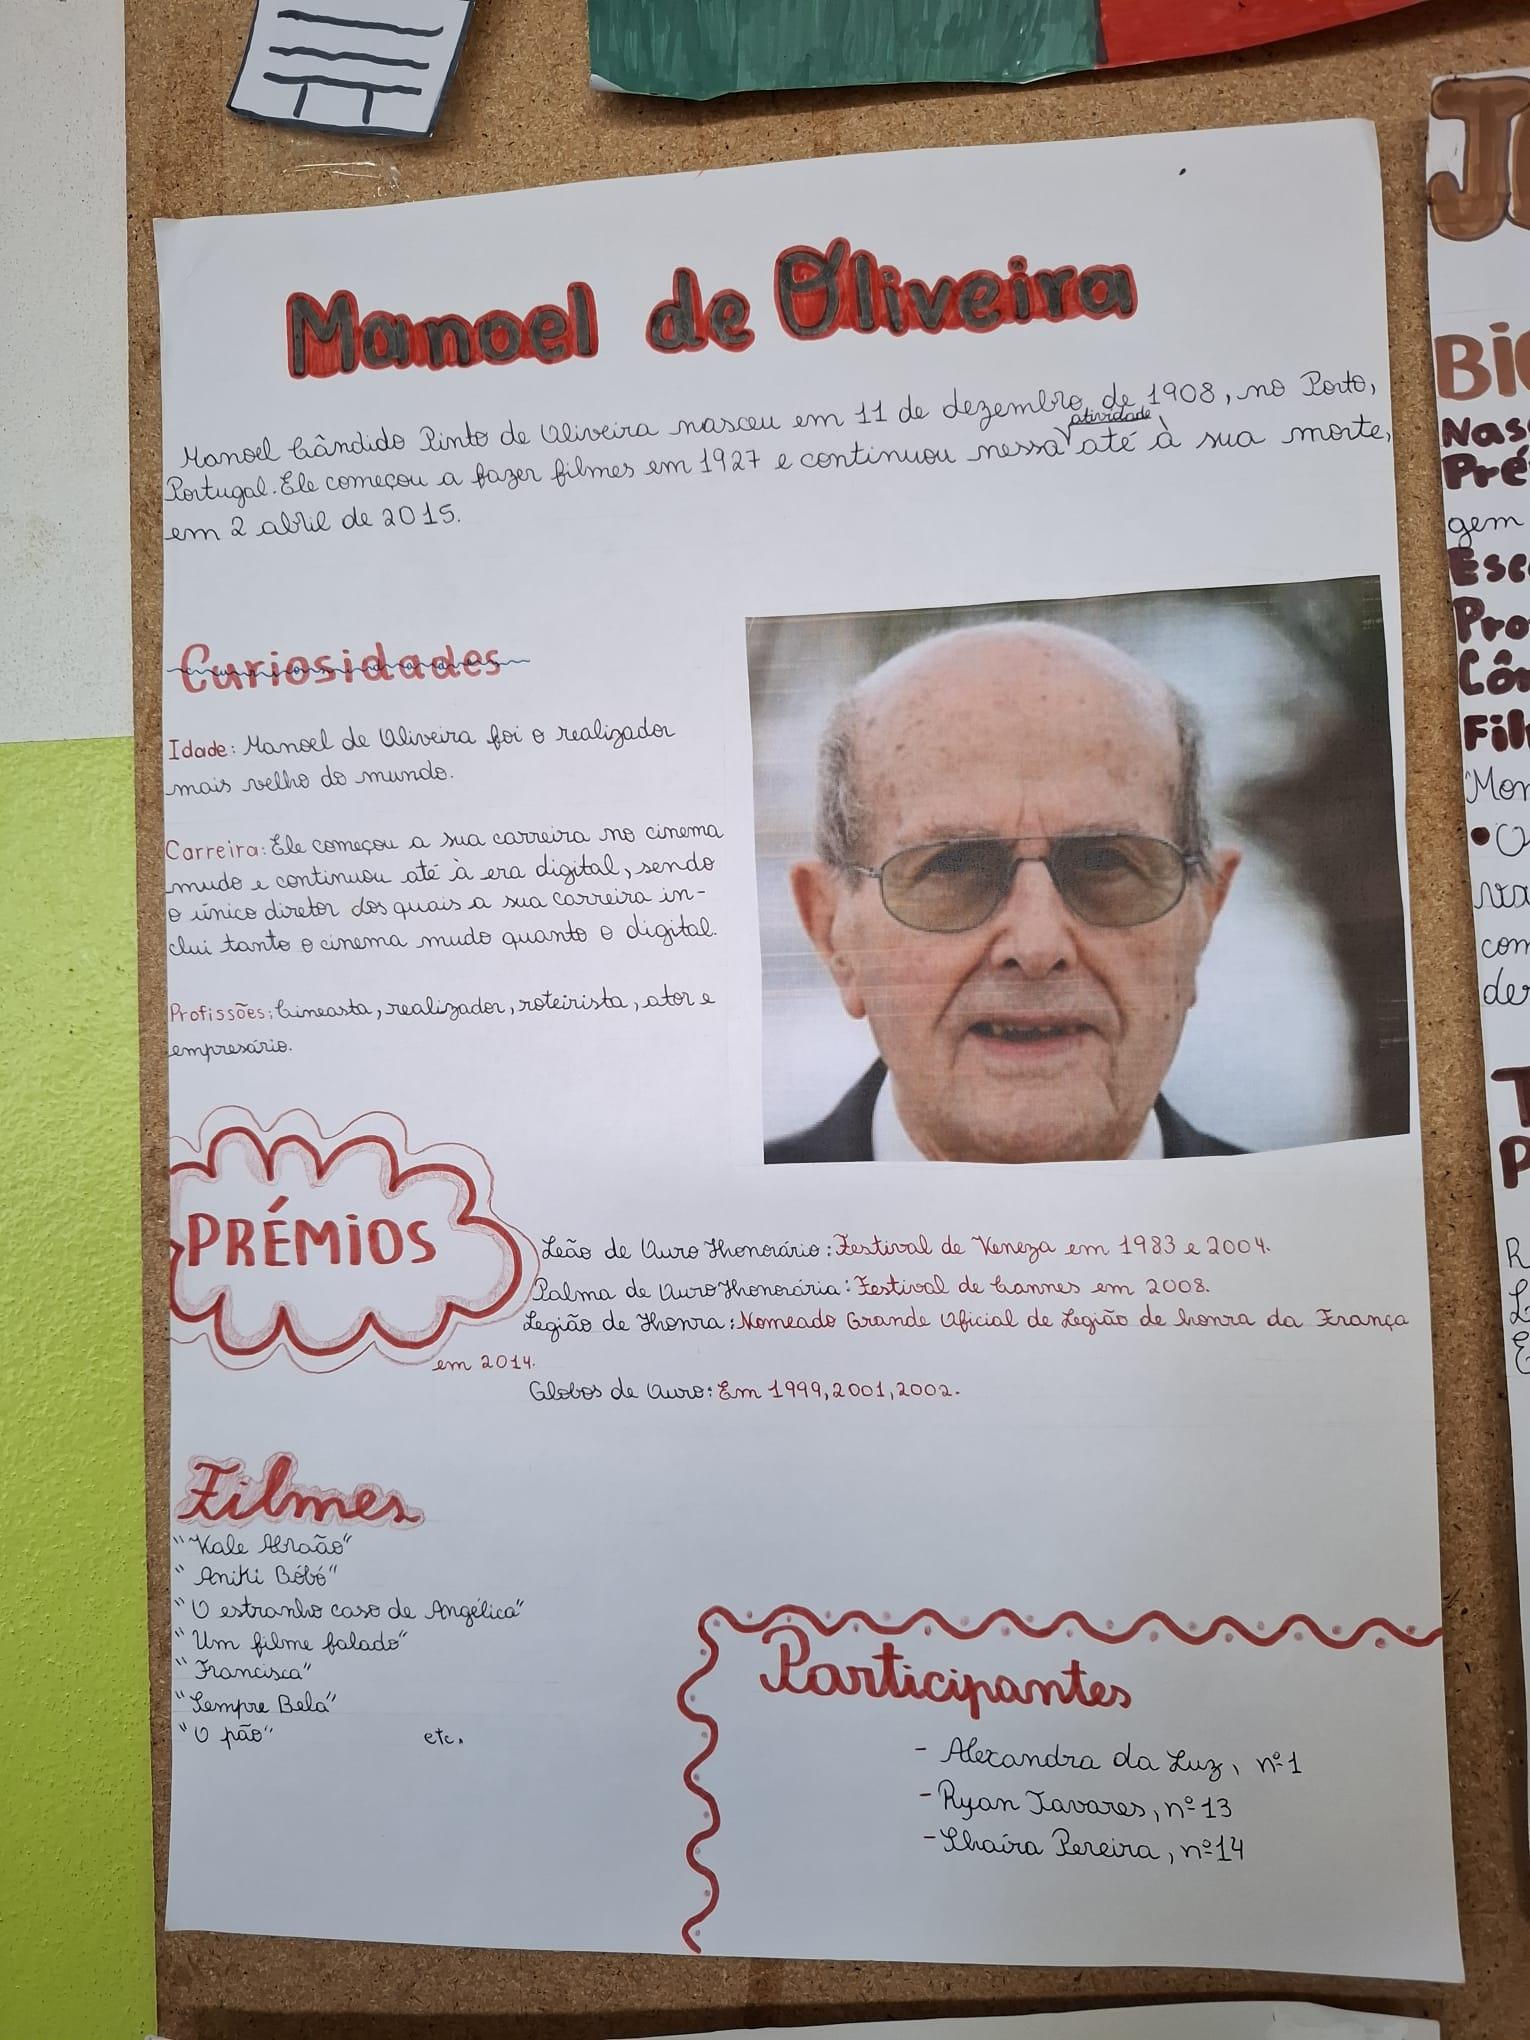 Manoel de Oliveira
Manoel Cândido Pinto de Oliveira nasceu em 11 de dezembro de 1908, no Porto,
Portugal. Ele começou a fazer filmes em 1927 e continuou nessa atividade até à sua morte,
em 2 abril de 2015.
Curiosidades
Idade: Manoel de Oliveira foi o realizador
mais velho do mundo.
Carreira: Ele começou a sua carreira no cinema
mudo e continuou até à era digital, sendo
o único diretor dos quais a sua carreira in-
clui tanto o cinema mudo quanto o digital.
Profissões: Cineasta, realizador, roteirista, ator e
empresário.
PRÉMIOS
Leão de Ouro Honorário: Festival de Veneza em 1983 e 2004.
Palma de Ouro Honorária: Festival de Cannes em 2008.
Legião de Honra: Nomeado Grande Oficial de Legião de honra da França
em 2014.
Globos de Ouro: Em 1999, 2001, 2002.
Filmes
"Vale Abraão"
"Aniki Bóbó"
"O estranho caso de Angélica"
"Um filme falado"
"Francisca"
"Sempre Bela"
"O pão" etc.
Participantes
- Alexandra da Luz, nº1
- Ryan Tavares, nº13
- Shaíra Pereira, nº14
Nas
Pré
gem
Esc
Pro
Côn
Fil
Mor
com
der